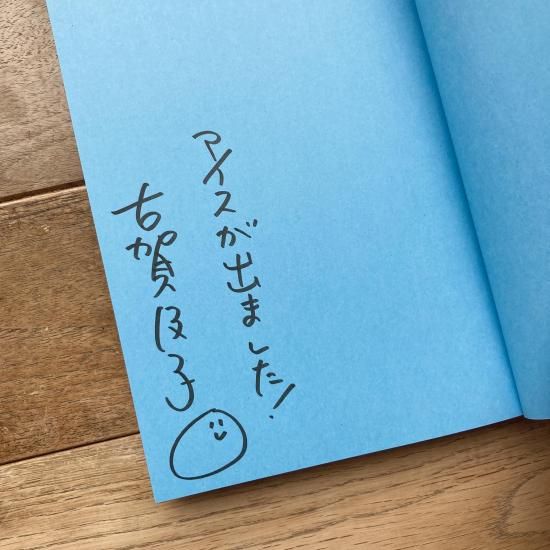 アイスが出ました!
古賀及子